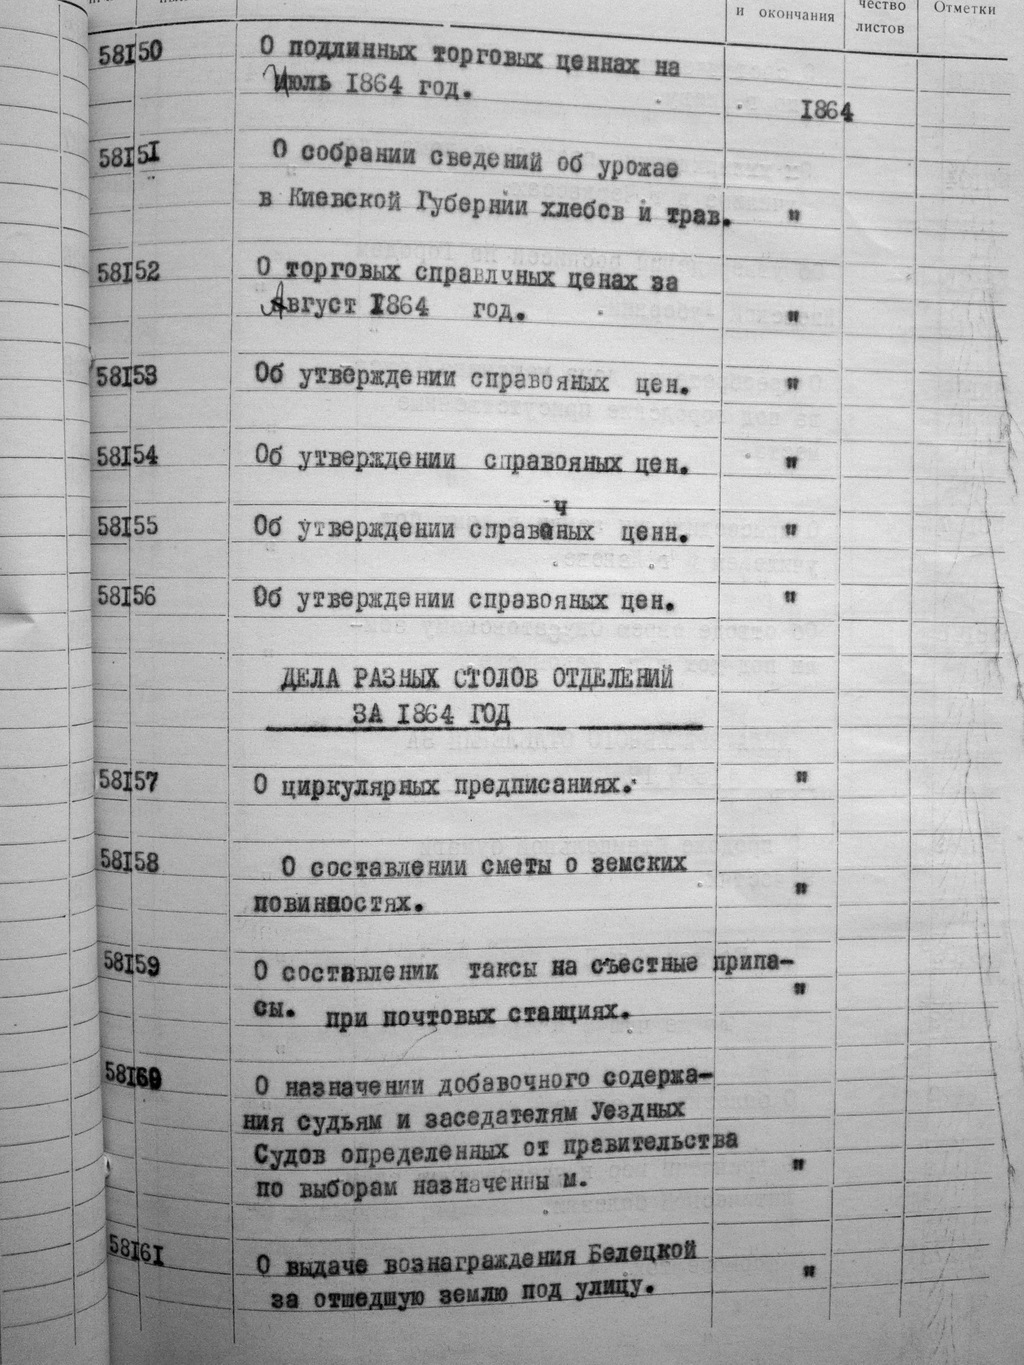 и окончания
чество
листов
Отметки
58150 О подлинных торговых ценнах на
Июль 1864 год.
1864
58151 О собрании сведений об урожае
в Киевской Губернии хлебов и трав. "
58152 О торговых справлчных ценах за
Август 1864 год. "
58153 Об утверждении справояных цен. "
58154 Об утверждении справояных цен. "
58155 Об утверждении справочных ценн. "
58156 Об утверждении справояных цен. "
ДЕЛА РАЗНЫХ СТОЛОВ ОТДЕЛЕНИЙ
ЗА 1864 ГОД
58157 О циркулярных предписаниях. "
58158 О составлении сметы о земских
повинностях. "
58159 О составлении таксы на съестные припа-
сы. при почтовых станциях. "
58160 О назначении добавочного содержа-
ния судьям и заседателям Уездных
Судов определенных от правительства
по выборам назначенны м. "
58161 О выдаче вознаграждения Белецкой
за отшедшую землю под улицу. "